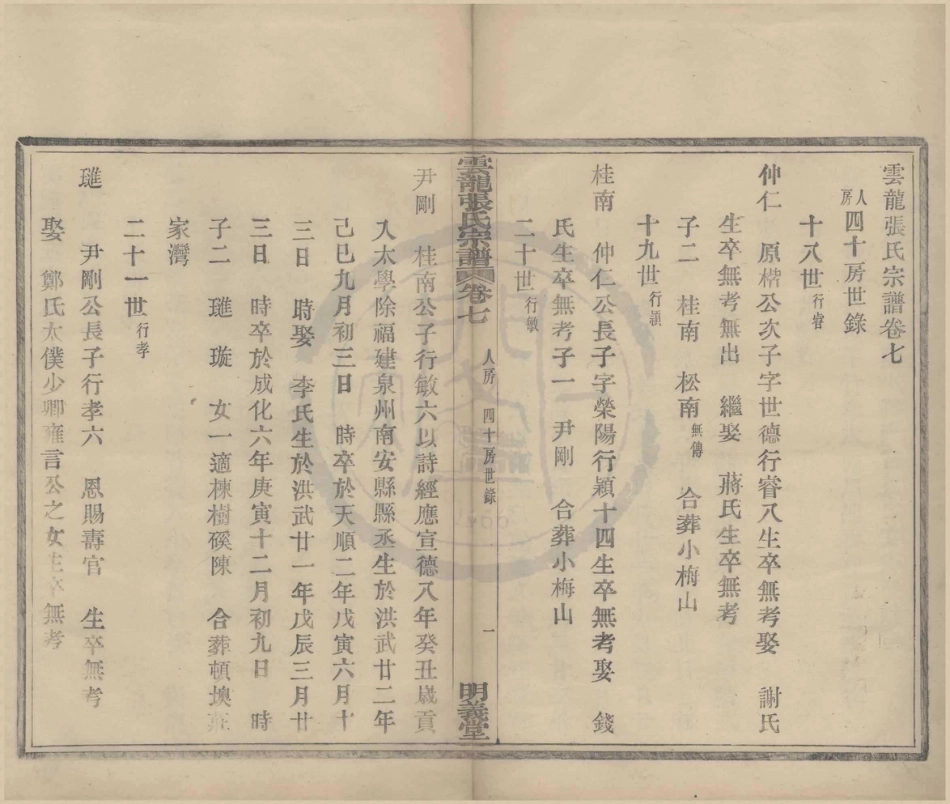 雲龍張氏宗譜卷七
人房 四十房世錄
十八世 行睿
仲仁 原楷公次子字世德行睿八生卒無考娶 謝氏
生卒無考無出 繼娶 蔣氏生卒無考
子二 桂南 松南 無傳 合葬小梅山
十九世 行穎
桂南 仲仁公長子字榮陽行穎十四生卒無考娶 錢
氏生卒無考子一 尹剛 合葬小梅山
二十世 行敏
雲龍張氏宗譜 卷七 人房 四十房世錄 一 明義堂
尹剛 桂南公子行敏六以詩經應宣德八年癸丑歲貢
入太學除福建泉州南安縣縣丞生於洪武廿二年
己巳九月初三日 時卒於天順二年戊寅六月十
三日 時娶 李氏生於洪武廿一年戊辰三月廿
三日 時卒於成化六年庚寅十二月初九日 時
子二 璡 璇 女一適棟樹磎陳 合葬頓墺莊
家灣
二十一世 行孝
璡 尹剛公長子行孝六 恩賜壽官 生卒無考
娶 鄭氏太僕少卿雍言公之女生卒無考